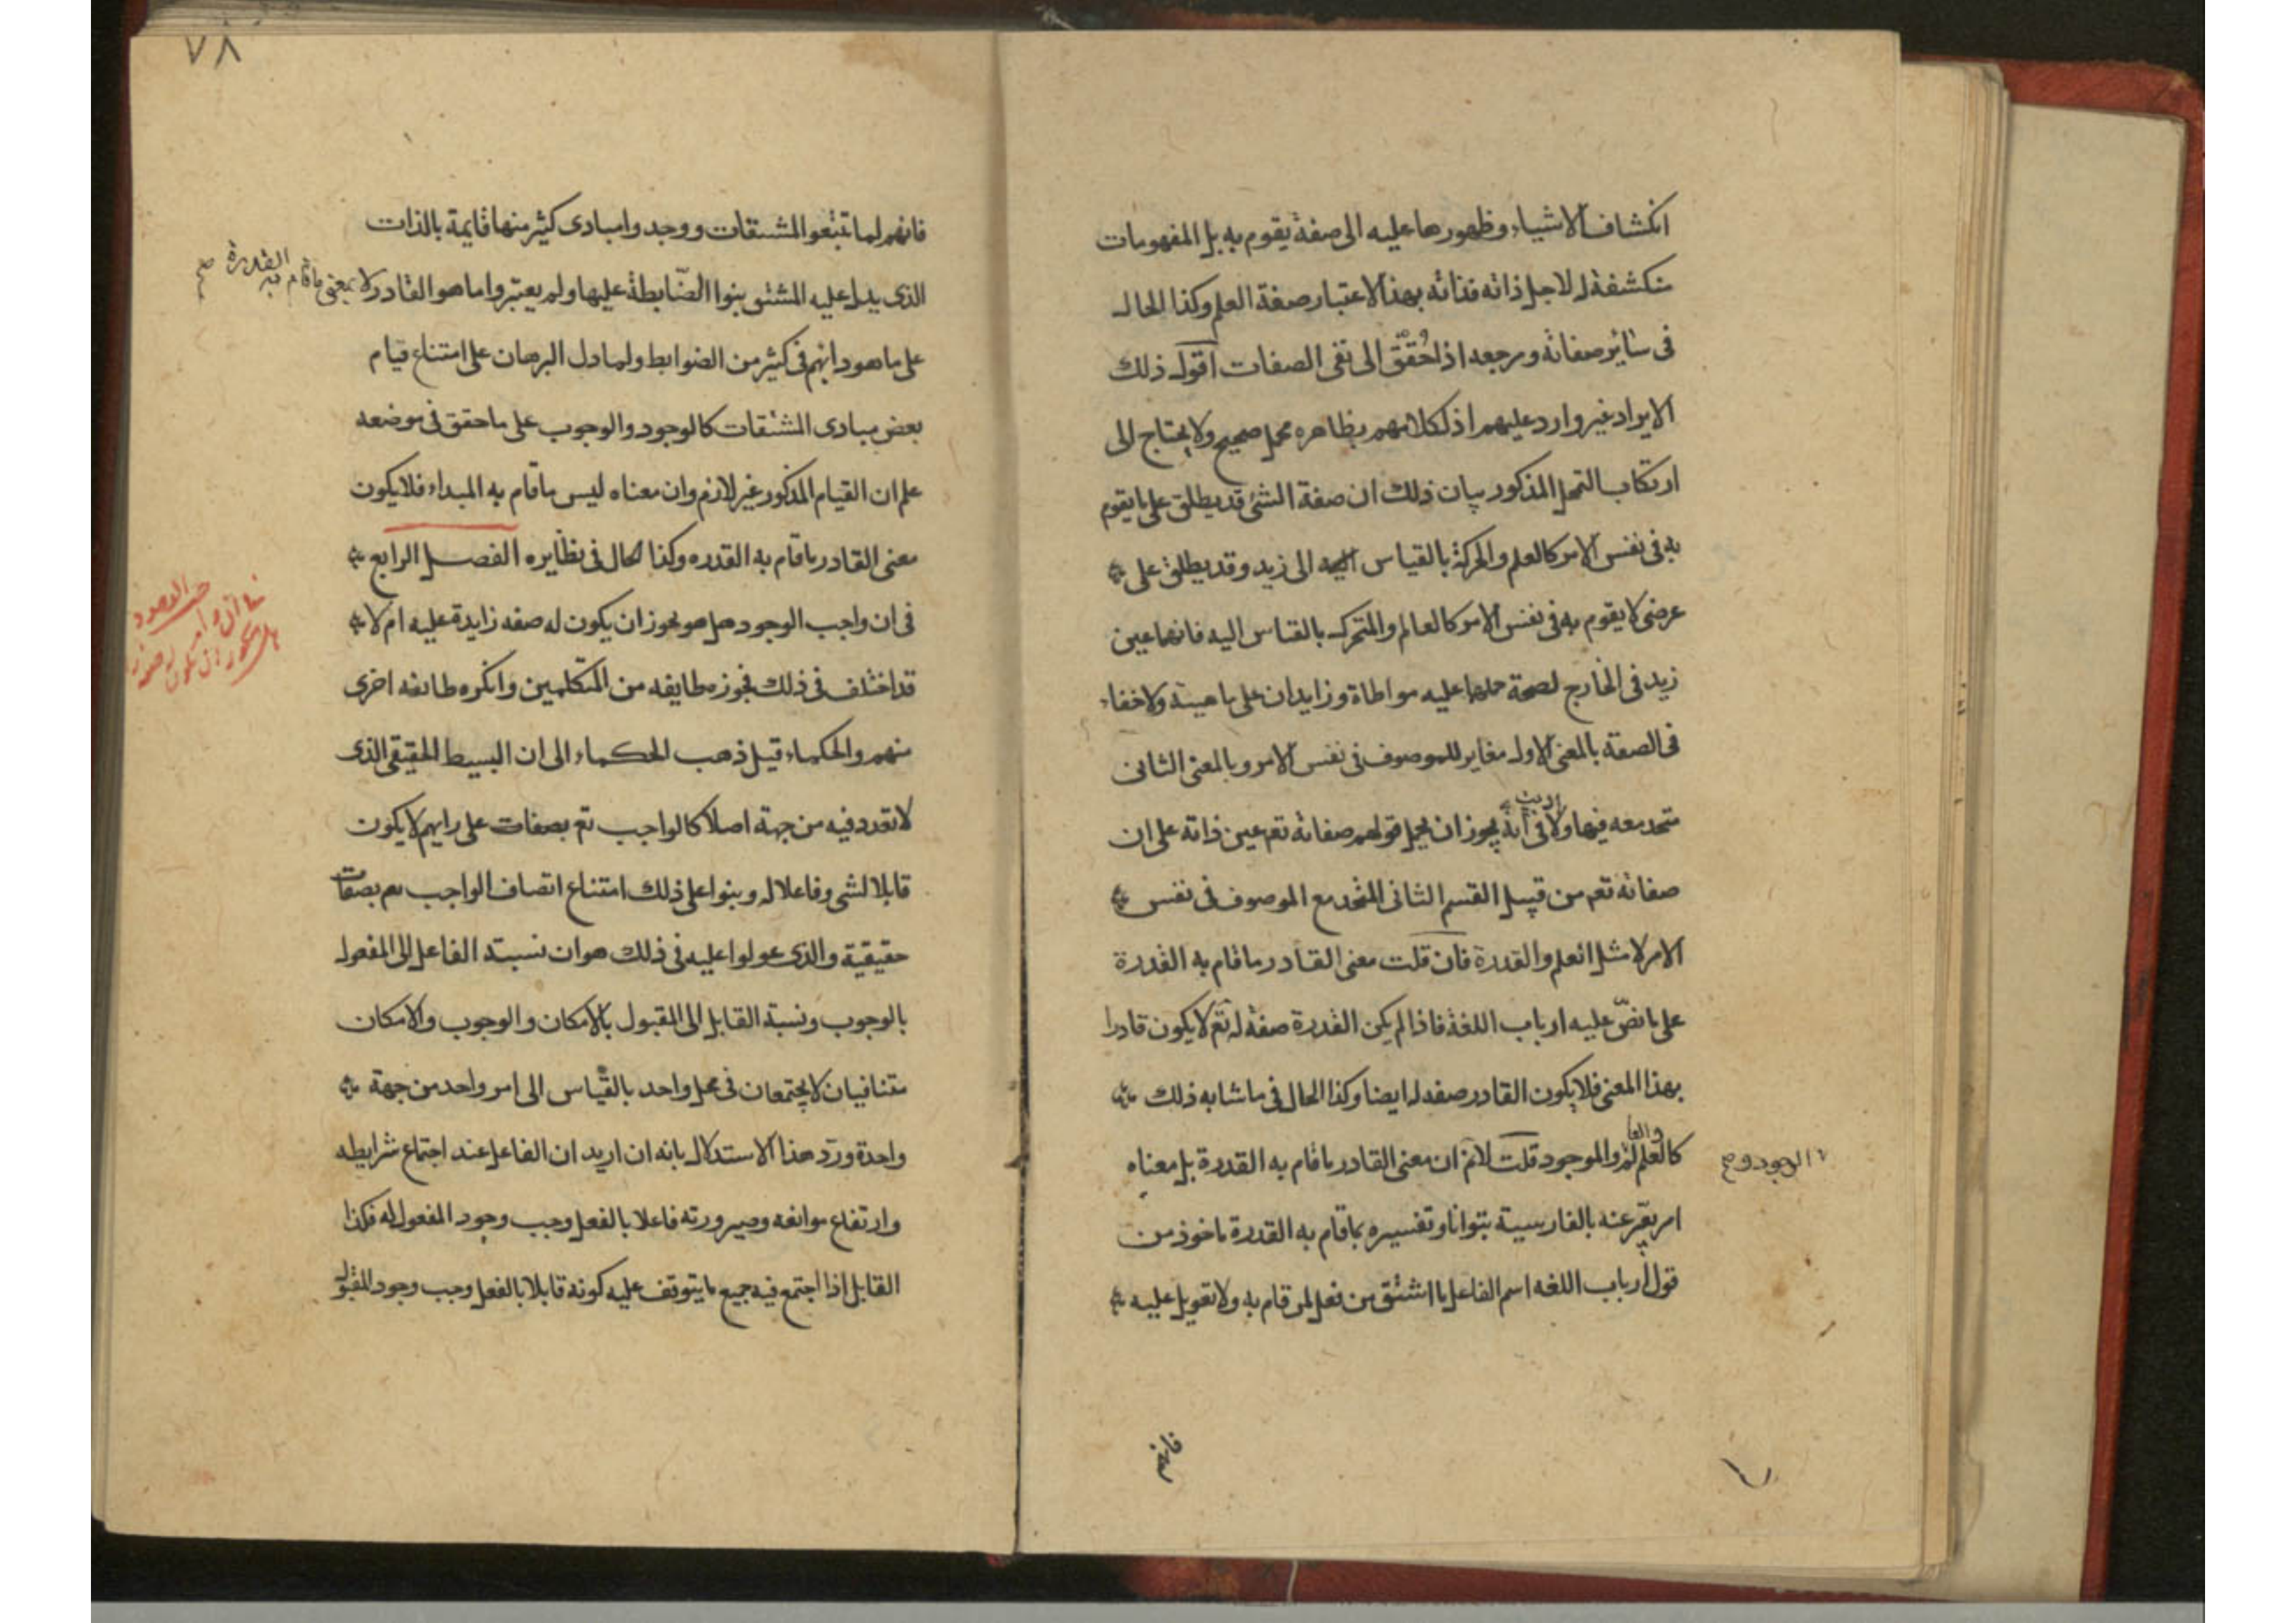 انكشاف الاشياء وظهورها عليه الى صفة يقوم به بل المفهومات
منكشفة له لاجل ذاته فذاته بهذا الاعتبار صفة العلم وكذا الحال
فى سائر صفاته ومرجعه اذا حُقّق الى نفى الصفات اقول ذلك
الايراد غير وارد عليهم اذ لكلامهم بظاهره محمل صحيح ولا يحتاج الى
ارتكاب التمحل المذكور بيان ذلك ان صفة الشئ قد يطلق على ما يقوم
به فى نفس الامر كالعلم والحركة بالقياس الى زيد وقد يطلق على
عرضى لا يقوم به فى نفس الامر كالعالم والمتحرك بالقياس اليه فانهما عين
زيد فى الخارج لصحة حملهما عليه مواطاة وزايدان على ماهيته ولا خفاء
فى الصفة بالمعنى الاول مغاير للموصوف فى نفس الامر وبالمعنى الثانى
متحد معه فيها ولا فى انه يجوز ان يحمل قولهم صفاته تعم عين ذاته على ان
صفاته تعم من قبيل القسم الثانى المتحد مع الموصوف فى نفس
الامر لا مثل العلم والقدرة فان قلت معنى القادر ما قام به القدرة
على ما نصّ عليه ارباب اللغة فاذا لم يكن القدرة صفة له تعم لا يكون قادرا
بهذا المعنى فلا يكون القادر صفه له ايضا وكذا الحال فى ما شابه ذلك
كالعلم والموجود قلت لانم ان معنى القادر ما قام به القدرة بل معناه
الوجود و صح
امر يعبّر عنه بالفارسية بتوانا وتفسيره بما قام به القدرة ماخوذ من
قول ارباب اللغه اسم الفاعل ما اشتق من فعل لمن قام به ولا تعويل عليه
فانهم
٧٨
فانهم لما تتبعوا المشتقات ووجدوا مبادى كثير منها قايمة بالذات
الذى يدل عليه المشتق بنوا الضّابطة عليها ولم يعتبروا ما هو القادر لا بمعنى ما قام به القدرة صح
على ما هو دابهم فى كثير من الضوابط ولما دل البرهان على امتناع قيام
بعض مبادى المشتقات كالوجود والوجوب على ما حقق فى موضعه
علم ان القيام المذكور غير لازم وان معناه ليس ما قام به المبداء فلا يكون
معنى القادر ما قام به القدره وكذا الحال فى نظايره الفصل الرابع
فى ان واجب الوجود هل هو يجوز ان يكون له صفه زايدة عليه ام لا
قد اختلف فى ذلك فجوزه طايفه من المتكلمين وانكره طائفه اخرى
منهم والحكماء قيل ذهب الحكماء الى ان البسيط الحقيقى الذى
لا تعدد فيه من جهة اصلا كالواجب تعم بصفات على رايهم لا يكون
قابلا لشى وفاعلا له وبنوا على ذلك امتناع اتصاف الواجب تعم بصفات
حقيقية والذى عولوا عليه فى ذلك هو ان نسبة الفاعل الى المفعول
بالوجوب ونسبة القابل الى المقبول بالامكان والوجوب والامكان
متنافيان لا يجتمعان فى محل واحد بالقياس الى امر واحد من جهة
واحدة وردّ هذا الاستدلال بانه ان اريد ان الفاعل عند اجتماع شرايطه
وارتفاع موانعه وصيرورته فاعلا بالفعل وجب وجود المفعول له فكذا
القابل اذا اجتمع فيه جميع ما يتوقف عليه كونه قابلا بالفعل وجب وجود المقبول